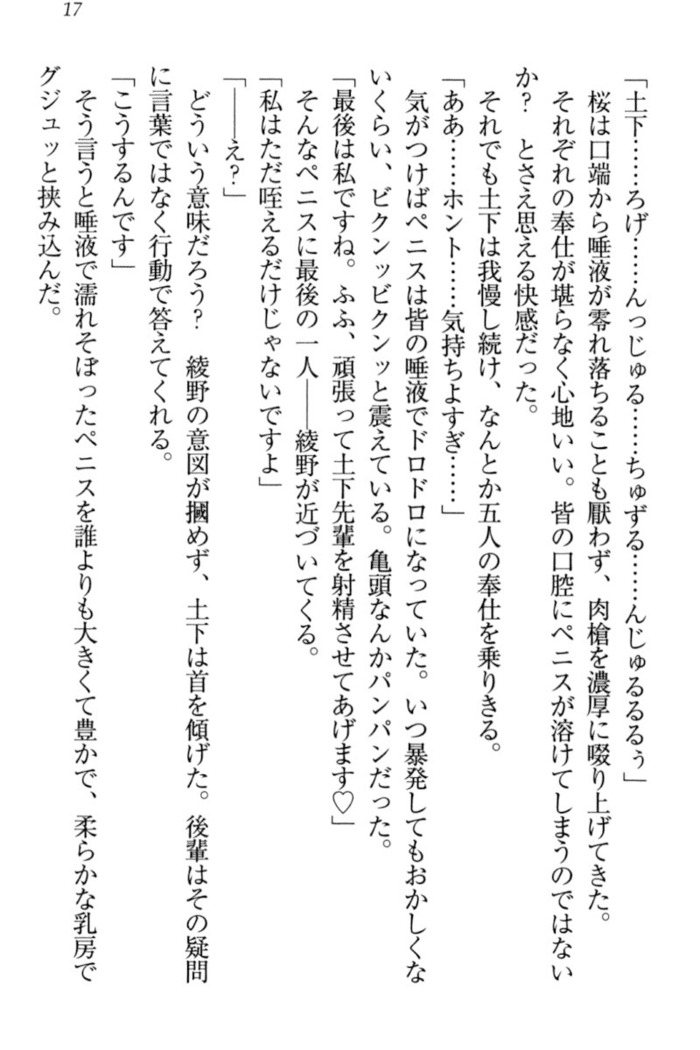 17
「土下……ろげ……んっじゅる……ちゅずる……んじゅるるるぅ」
桜は口端から唾液が零れ落ちることも厭わず、肉槍を濃厚に啜り上げてきた。
それぞれの奉仕が堪らなく心地いい。皆の口腔にペニスが溶けてしまうのではない
か？　とさえ思える快感だった。
それでも土下は我慢し続け、なんとか五人の奉仕を乗りきる。
「ああ……ホント……気持ちよすぎ……」
気がつけばペニスは皆の唾液でドロドロになっていた。いつ暴発してもおかしくな
いくらい、ビクンッビクンッと震えている。亀頭なんかパンパンだった。
「最後は私ですね。ふふ、頑張って土下先輩を射精させてあげます♡」
そんなペニスに最後の一人――綾野が近づいてくる。
「私はただ咥えるだけじゃないですよ」
「――え？」
どういう意味だろう？　綾野の意図が摑めず、土下は首を傾げた。後輩はその疑問
に言葉ではなく行動で答えてくれる。
「こうするんです」
そう言うと唾液で濡れそぼったペニスを誰よりも大きくて豊かで、柔らかな乳房で
グジュッと挟み込んだ。